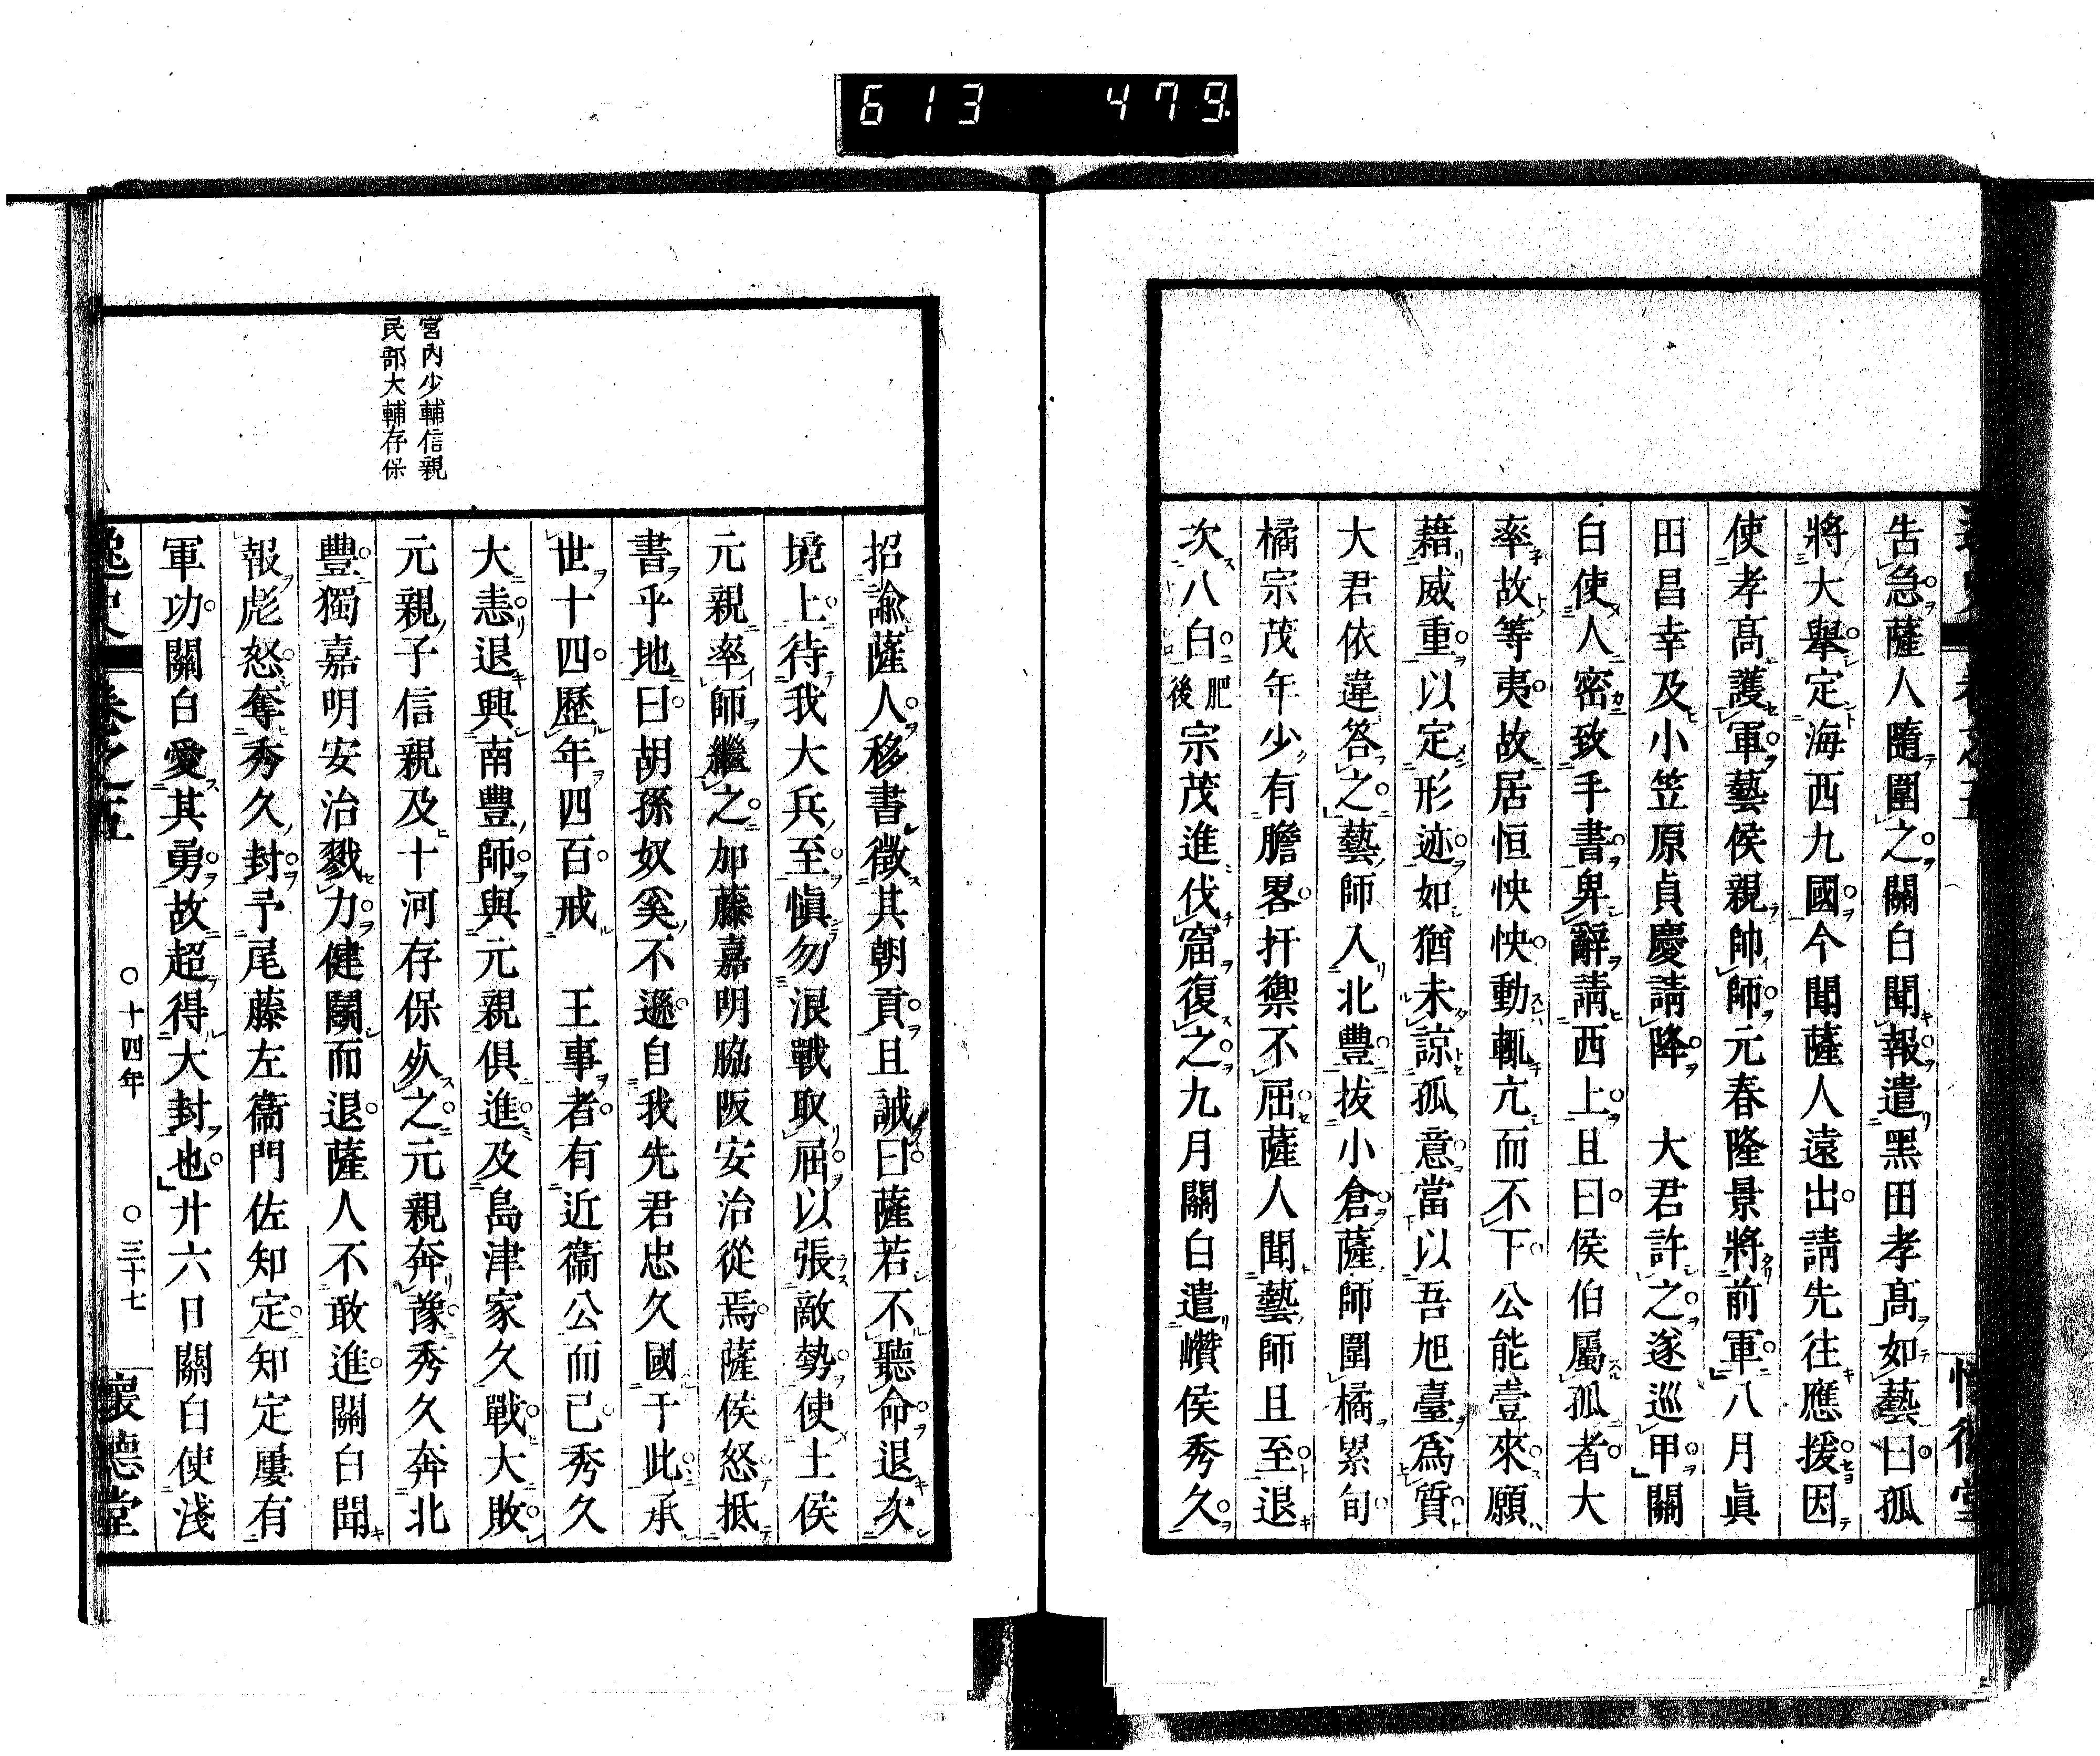 613 479
告急薩人隨圍之關白聞報遣黑田孝高如藝曰孤
將大舉定海西九國今聞薩人遠出請先往應援因
使孝高護軍藝侯親帥師元春隆景將前軍八月眞
田昌幸及小笠原貞慶請降 大君許之遂巡甲關
白使人密致手書卑辭請西上且曰侯伯屬孤者大
率故等夷故居恒怏怏動輒亢而不下公能壹來願
藉威重以定形迹如猶未諒孤意當以吾旭臺爲質
大君依違答之藝師入北豐拔小倉薩師圍橘累旬
橘宗茂年少有膽畧扞禦不屈薩人聞藝師且至退
次八白肥後宗茂進伐窟復之九月關白遣巑侯秀久
宮內少輔信親
民部大輔存保
招諭薩人移書徵其朝貢且誡曰薩若不聽命退次
境上待我大兵至愼勿浪戰取屈以張敵勢使土侯
元親率師繼之加藤嘉明脇阪安治從焉薩侯怒抵
書乎地曰胡孫奴奚不遜自我先君忠久國于此承
世十四歷年四百戒 王事者有近衞公而已秀久
大恚退興南豐師與元親俱進及島津家久戰大敗
元親子信親及十河存保歿之元親奔豫秀久奔北
豐獨嘉明安治戮力健鬭而退薩人不敢進關白聞
報彪怒奪秀久封予尾藤左衞門佐知定知定屢有
軍功關白愛其勇故超得大封也廿六日關白使淺
逸史 卷之五 ○十四年 ○三十七 懷德堂